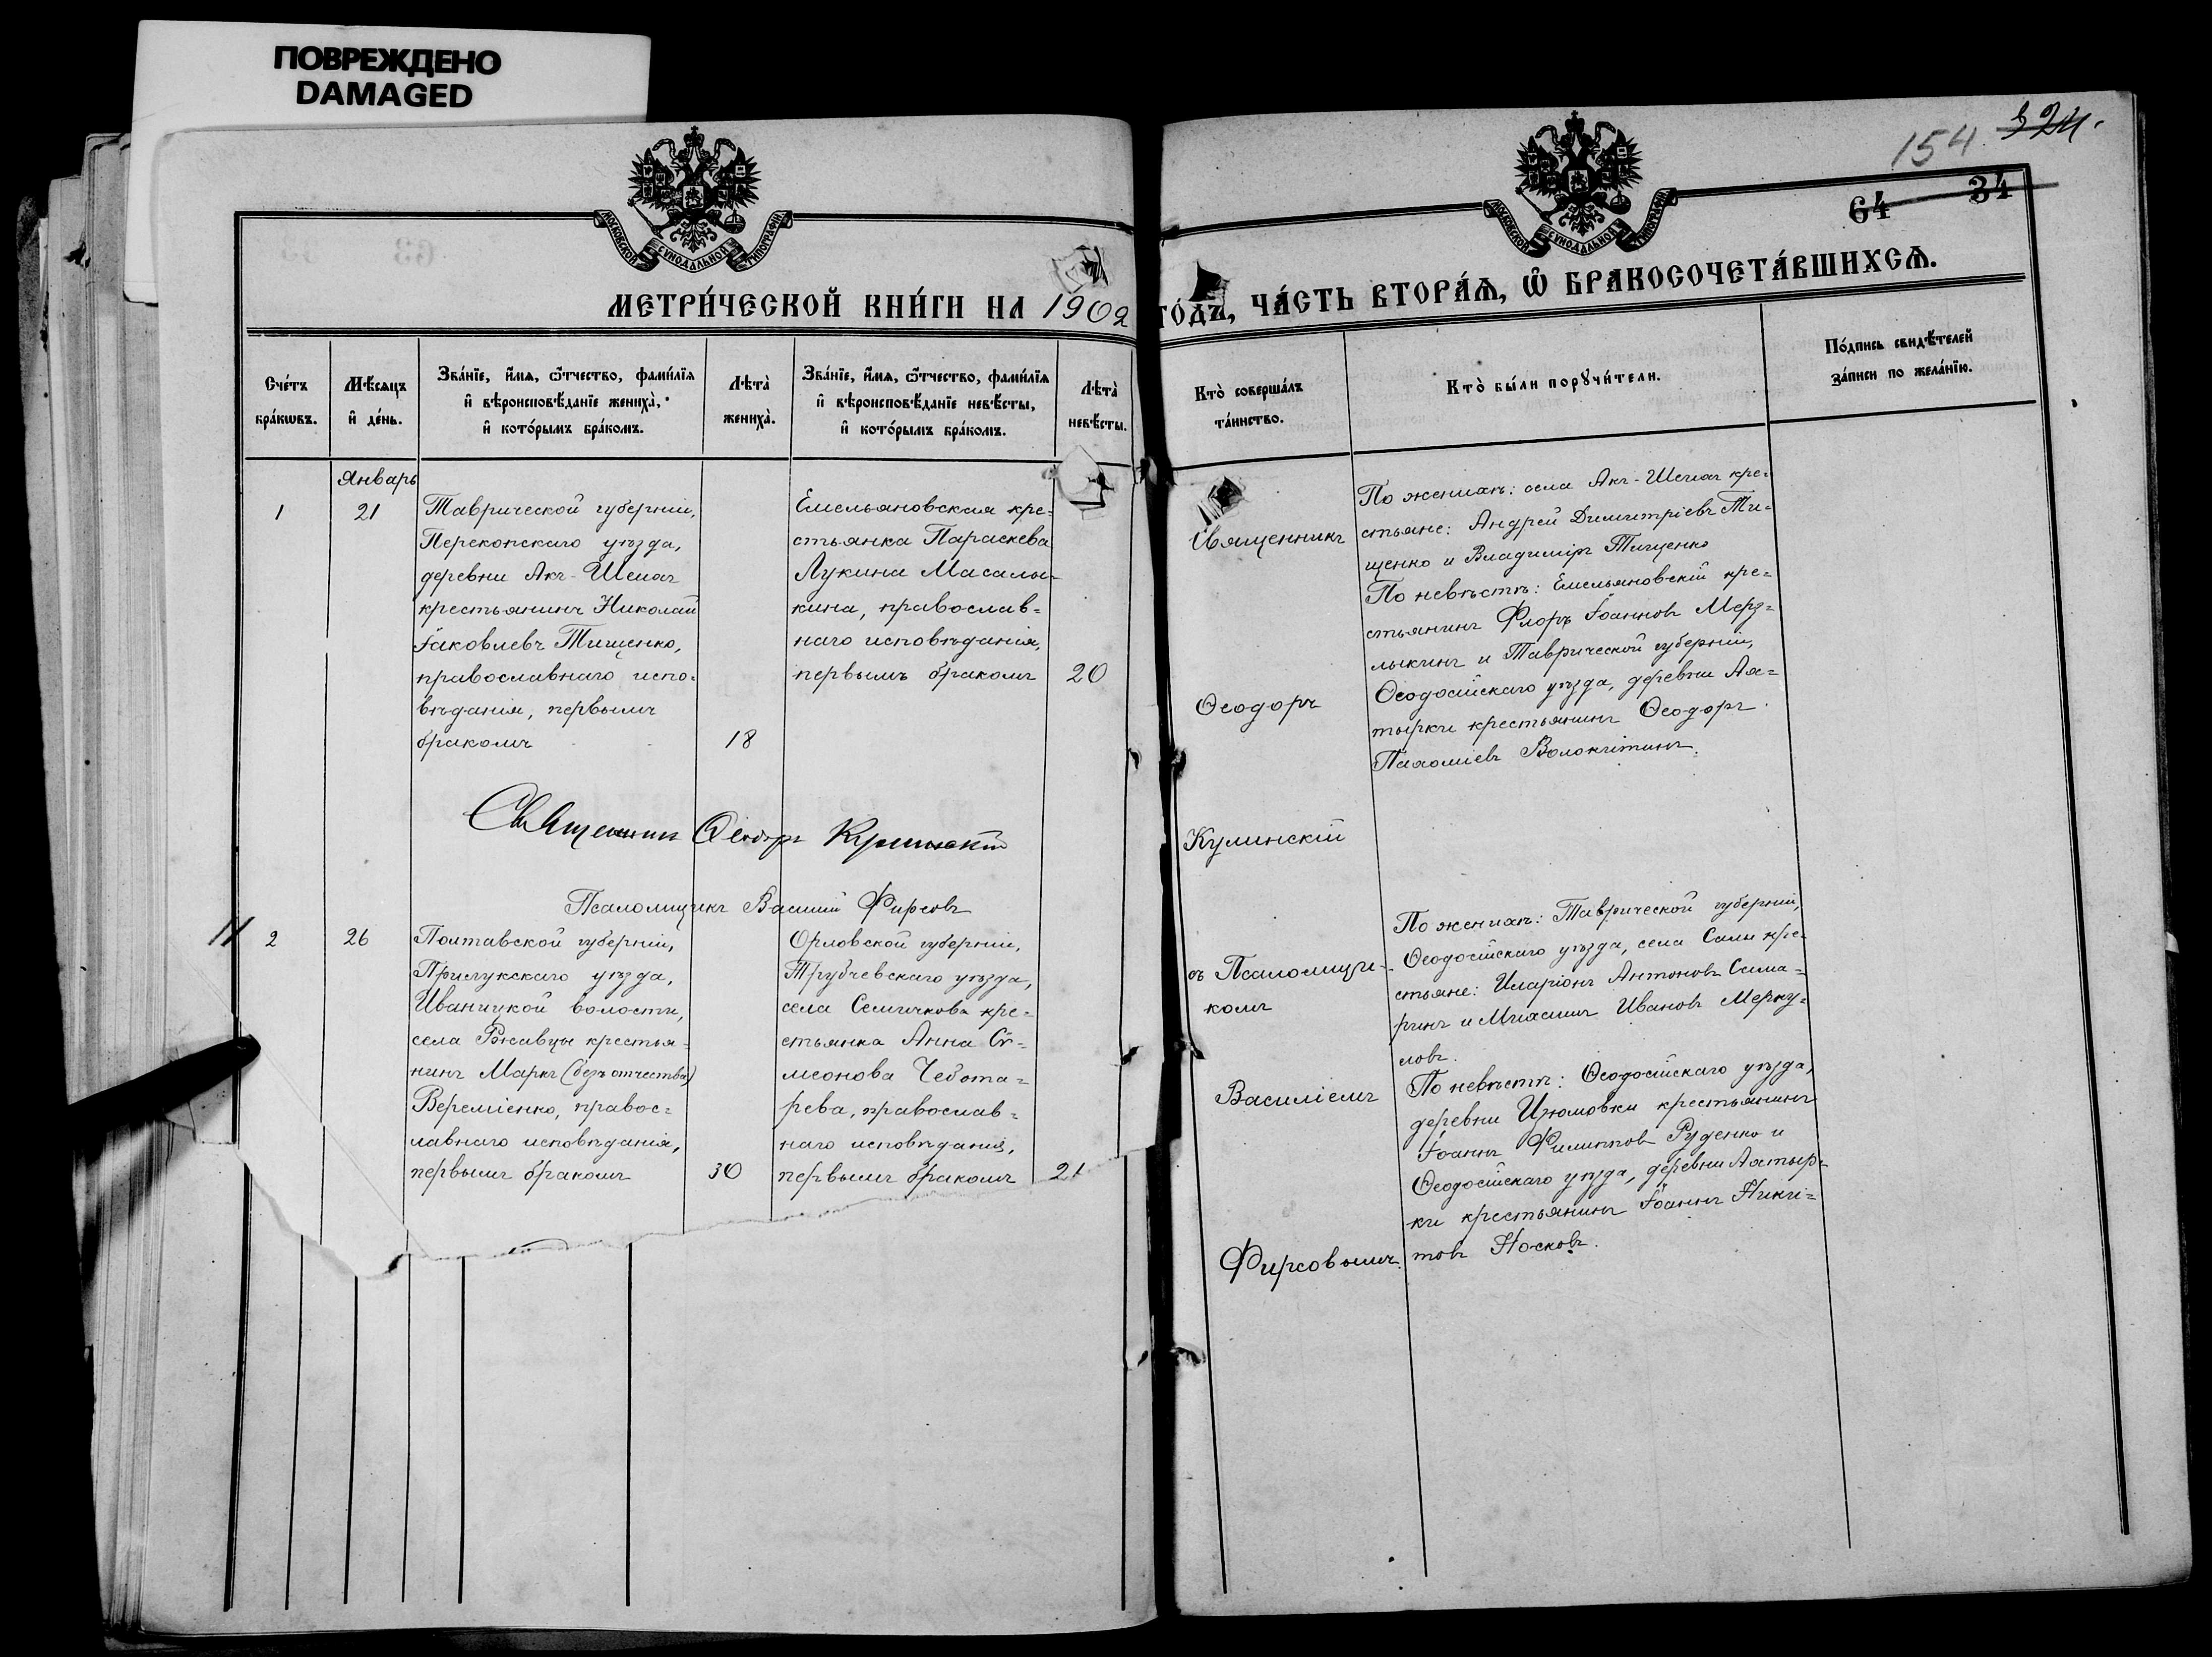 ПОВРЕЖДЕНО
DAMAGED
154 324.
64 34
МОСКОВСКОЙ СУНОДАЛЬНОЙ ТИПОГРАФІИ
МОСКОВСКОЙ СУНОДАЛЬНОЙ ТИПОГРАФІИ
МЕТРИ́ЧЕСКОЙ КНИ́ГИ НА 1902
ГО́ДЪ, ЧА́СТЬ ВТОРА́Ѧ, Ѽ БРАКОСОЧЕТА́ВШИХСѦ.
Сче́тъ
бра́кѡвъ.
Мѣ́сяцъ
и҆ де́нь.
Зва́нїе, и҆́мя, ѻ҆́тчество, фами́лїя
и҆ вѣроисповѣ́данїе жениха̀,
и҆ кото́рымъ бра́комъ.
Лѣта̀
жениха̀.
Зва́нїе, и҆́мя, ѻ҆́тчество, фами́лїя
и҆ вѣроисповѣ́данїе невѣ́сты,
и҆ кото́рымъ бра́комъ.
Лѣта̀
невѣ́сты.
Кто̀ соверша́лъ
та́инство.
Кто̀ бы́ли порꙋчи́тели.
По́дпись свидѣ́телей
за́писи по жела́нїю.
Январь
1
21
Таврической губерніи,
Перекопскаго уѣзда,
деревни Акъ-Шеихъ
крестьянинъ Николай
Іаковлевъ Тищенко,
православнаго испо-
вѣданія, первымъ
бракомъ
18
Емельяновская кре-
стьянка Параскева
Лукина Масалы-
кина, православ-
наго исповѣданія,
первымъ бракомъ
20
Священникъ
Ѳеодоръ
Кулинскій
съ Псаломщи-
комъ
Василіемъ
Фирсовымъ.
По женихѣ: села Акъ-Шеихъ кре-
стьяне: Андрей Димитріевъ Ти-
щенко и Владиміръ Тищенко
По невѣстѣ: Емельяновскій кре-
стьянинъ Флоръ Іоанновъ Мерз-
лыкинъ и Таврической губерніи,
Ѳеодосійскаго уѣзда, деревни Ах-
тырки крестьянинъ Ѳеодоръ
Пахоміевъ Волокитинъ.
Священникъ Ѳеодоръ Кулинскій
Псаломщикъ Василій Фирсовъ
2
26
Полтавской губерніи,
Прилукскаго уѣзда,
Иваницкой волости,
села Ржавцы крестья-
нинъ Маркъ (безъ отчества)
Вереміенко, правос-
лавнаго исповѣданія,
первымъ бракомъ
30
Орловской губерніи,
Трубчевскаго уѣзда,
села Семячкова кре-
стьянка Анна Си-
меонова Чебота-
рева, православ-
наго исповѣданія,
первымъ бракомъ
21
По женихѣ: Таврической губерніи,
Ѳеодосійскаго уѣзда, села Салы кре-
стьяне: Иларіонъ Антоновъ Сама-
ринъ и Михаилъ Ивановъ Мерку-
ловъ.
По невѣстѣ: Ѳеодосійскаго уѣзда,
деревни Изюмовки крестьянинъ
Іоаннъ Филипповъ Руденко и
Ѳеодосійскаго уѣзда, деревни Ахтыр-
ки крестьянинъ Іоаннъ Ники-
товъ Носковъ.